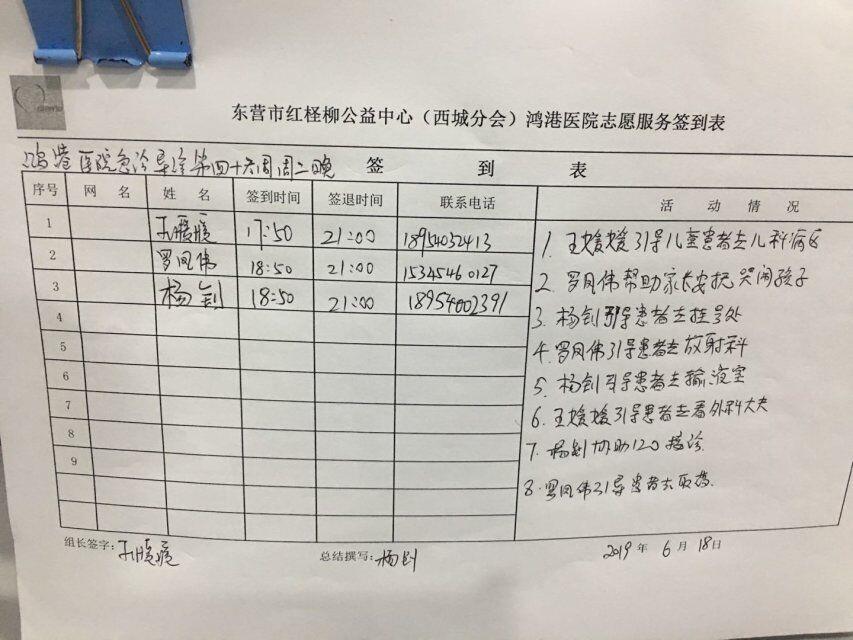 东营市红柽柳公益中心（西城分会）鸿港医院志愿服务签到表
鸿港医院急诊导诊第四十六周周二晚 签 到 表
序号 网 名 姓 名 签到时间 签退时间 联系电话 活 动 情 况
1 17:50 21:00 18954032413
2 罗凤伟 18:50 21:00 15345460127
3 杨钊 18:50 21:00 18954002391
4
5
6
7
8
9
1. 王媛媛引导儿童患者去儿科病区
2. 罗凤伟帮助家长安抚哭闹孩子
3. 杨钊引导患者去挂号处
4. 罗凤伟引导患者去放射科
5. 杨钊引导患者去输液室
6. 王媛媛引导患者去看外科大夫
7. 杨钊协助120接诊
8. 罗凤伟引导患者去取药.
组长签字： 总结撰写：杨钊 2019 年 6 月 18日